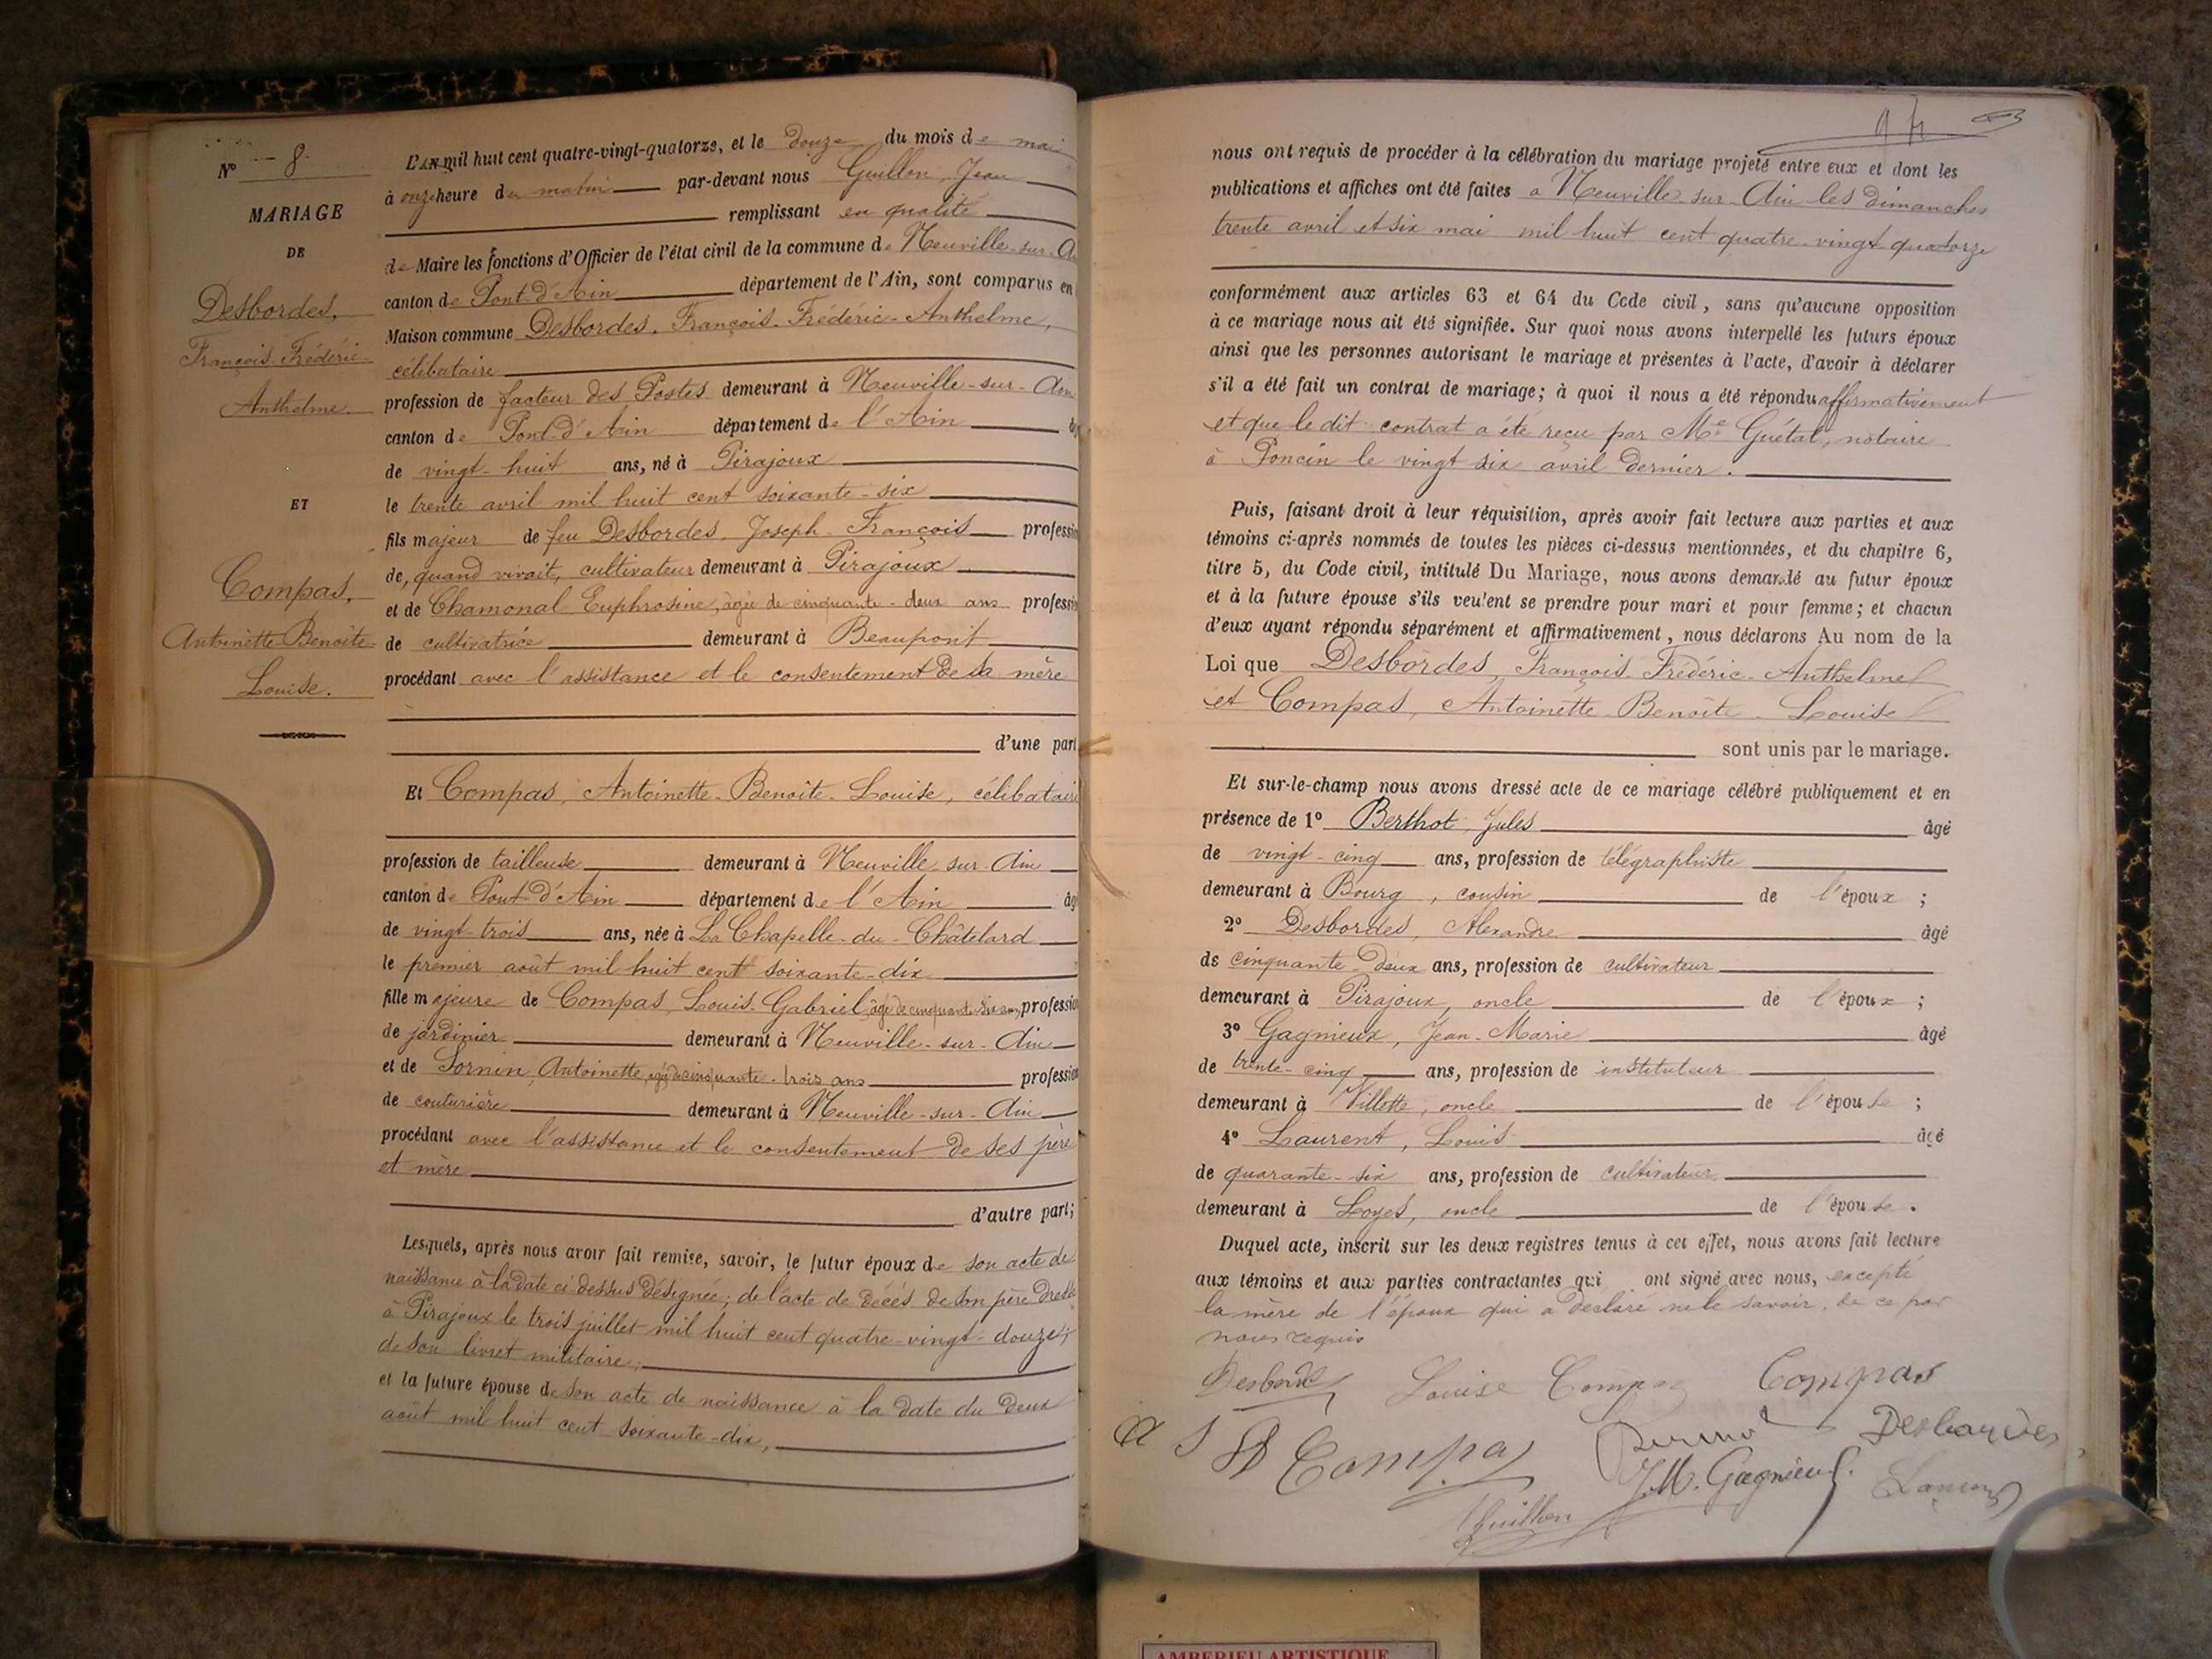 Nº 8
MARIAGE
DE
Desbordes,
François-Frédéric-
Anthelme.
ET
Compas,
Antoinette-Benoîte-
Louise.
L'AN mil huit cent quatre-vingt-quatorze, et le douze du mois de mai
à onze heure du matin par-devant nous Guillon, Jean
remplissant en qualité
de Maire les fonctions d'Officier de l'état civil de la commune de Neuville-sur-A
canton de Pont-d'Ain département de l'Ain, sont comparus en
Maison commune Desbordes, François-Frédéric-Anthelme,
célibataire
profession de facteur des Postes demeurant à Neuville-sur-Ain
canton de Pont-d'Ain département de l'Ain âg
de vingt-huit ans, né à Pirajoux
le trente avril mil huit cent soixante-six
fils majeur de feu Desbordes, Joseph-François profession
de, quand vivait, cultivateur demeurant à Pirajoux
et de Chamonal Euphrosine, âgée de cinquante-deux ans profession
de cultivatrice demeurant à Beaupont
procédant avec l'assistance et le consentement de sa mère
d'une part
Et Compas, Antoinette-Benoîte-Louise, célibataire
profession de tailleuse demeurant à Neuville-sur-Ain
canton de Pont-d'Ain département de l'Ain âg
de vingt-trois ans, née à La Chapelle-du-Châtelard
le premier août mil huit cent soixante-dix
fille majeure de Compas, Louis-Gabriel âgé de cinquante-six ans, profession
de jardinier demeurant à Neuville-sur-Ain
et de Sornin, Antoinette, âgée de cinquante-trois ans profession
de couturière demeurant à Neuville-sur-Ain
procédant avec l'assistance et le consentement de ses père
et mère
d'autre part;
Lesquels, après nous avoir fait remise, savoir, le futur époux de son acte de
naissance à la date ci-dessus désignée; de l'acte de décès de son père dressé
à Pirajoux le trois juillet mil huit cent quatre-vingt-douze;
de son livret militaire;
et la future épouse de son acte de naissance à la date du deux
août mil huit cent soixante-dix,
94
nous ont requis de procéder à la célébration du mariage projeté entre eux et dont les
publications et affiches ont été faites à Neuville-sur-Ain les dimanches
trente avril et six mai mil huit cent quatre-vingt-quatorze
conformément aux articles 63 et 64 du Code civil, sans qu'aucune opposition
à ce mariage nous ait été signifiée. Sur quoi nous avons interpellé les futurs époux
ainsi que les personnes autorisant le mariage et présentes à l'acte, d'avoir à déclarer
s'il a été fait un contrat de mariage; à quoi il nous a été répondu affirmativement
et que le dit contrat a été reçu par Me Guétat, notaire
à Poncin le vingt six avril dernier.
Puis, faisant droit à leur réquisition, après avoir fait lecture aux parties et aux
témoins ci-après nommés de toutes les pièces ci-dessus mentionnées, et du chapitre 6,
titre 5, du Code civil, intitulé Du Mariage, nous avons demandé au futur époux
et à la future épouse s'ils veulent se prendre pour mari et pour femme; et chacun
d'eux ayant répondu séparément et affirmativement, nous déclarons Au nom de la
Loi que Desbordes, François-Frédéric-Anthelme
et Compas, Antoinette-Benoîte-Louise
sont unis par le mariage.
Et sur-le-champ nous avons dressé acte de ce mariage célébré publiquement et en
présence de 1º Berthot, Jules âgé
de vingt-cinq ans, profession de télégraphiste
demeurant à Bourg, cousin de l'époux;
2º Desbordes, Alexandre âgé
de cinquante-deux ans, profession de cultivateur
demeurant à Pirajoux, oncle de l'époux;
3º Gagnieux, Jean-Marie âgé
de trente-cinq ans, profession de instituteur
demeurant à Villette, oncle de l'épouse;
4º Laurent, Louis âgé
de quarante-six ans, profession de cultivateur
demeurant à Loyes, oncle de l'épouse.
Duquel acte, inscrit sur les deux registres tenus à cet effet, nous avons fait lecture
aux témoins et aux parties contractantes qui ont signé avec nous, excepté
la mère de l'époux qui a déclaré ne le savoir, de ce par
nous requis
Desbordes Louise Compas Compas
Compas Desbordes
J.M. Gagnieux
Guillon
AMBERIEU ARTISTIQUE